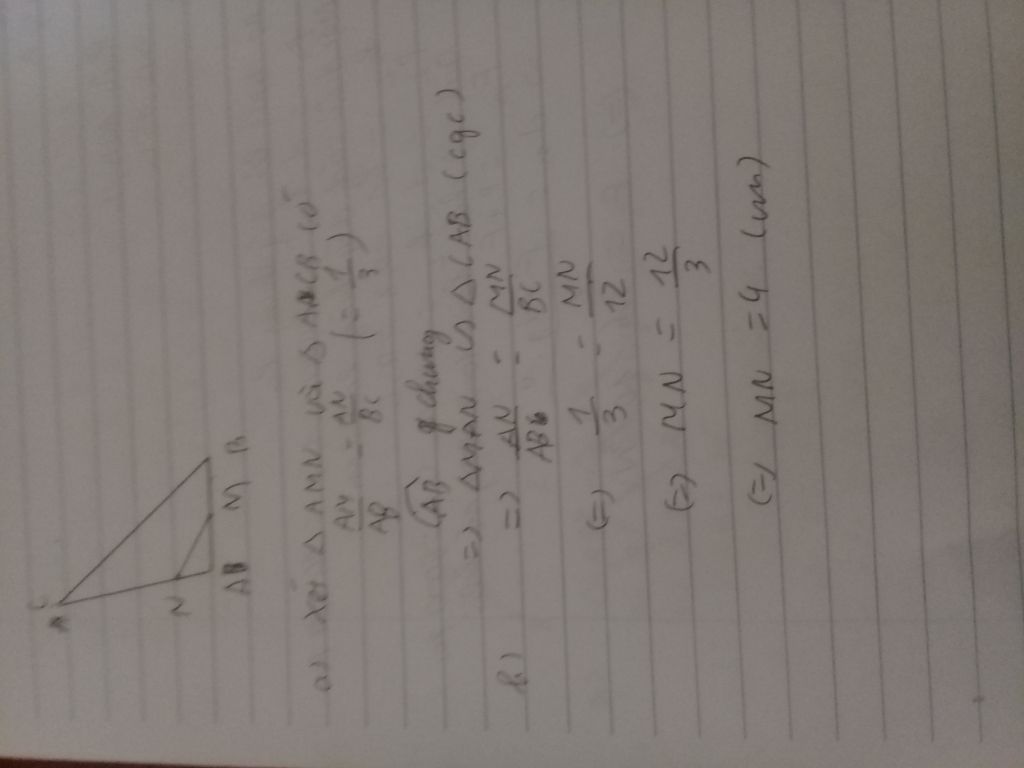 C
A
N
AB M B
a) Xét △ AMN và △ ACB có
AN/AB = AN/BC (= 1/3)
CAB chung
=> △MAN ∽ △CAB (cgc)
b) => AN/AB = MN/BC
(=) 1/3 = MN/12
(=) MN = 12/3
(=) MN = 4 (cm)